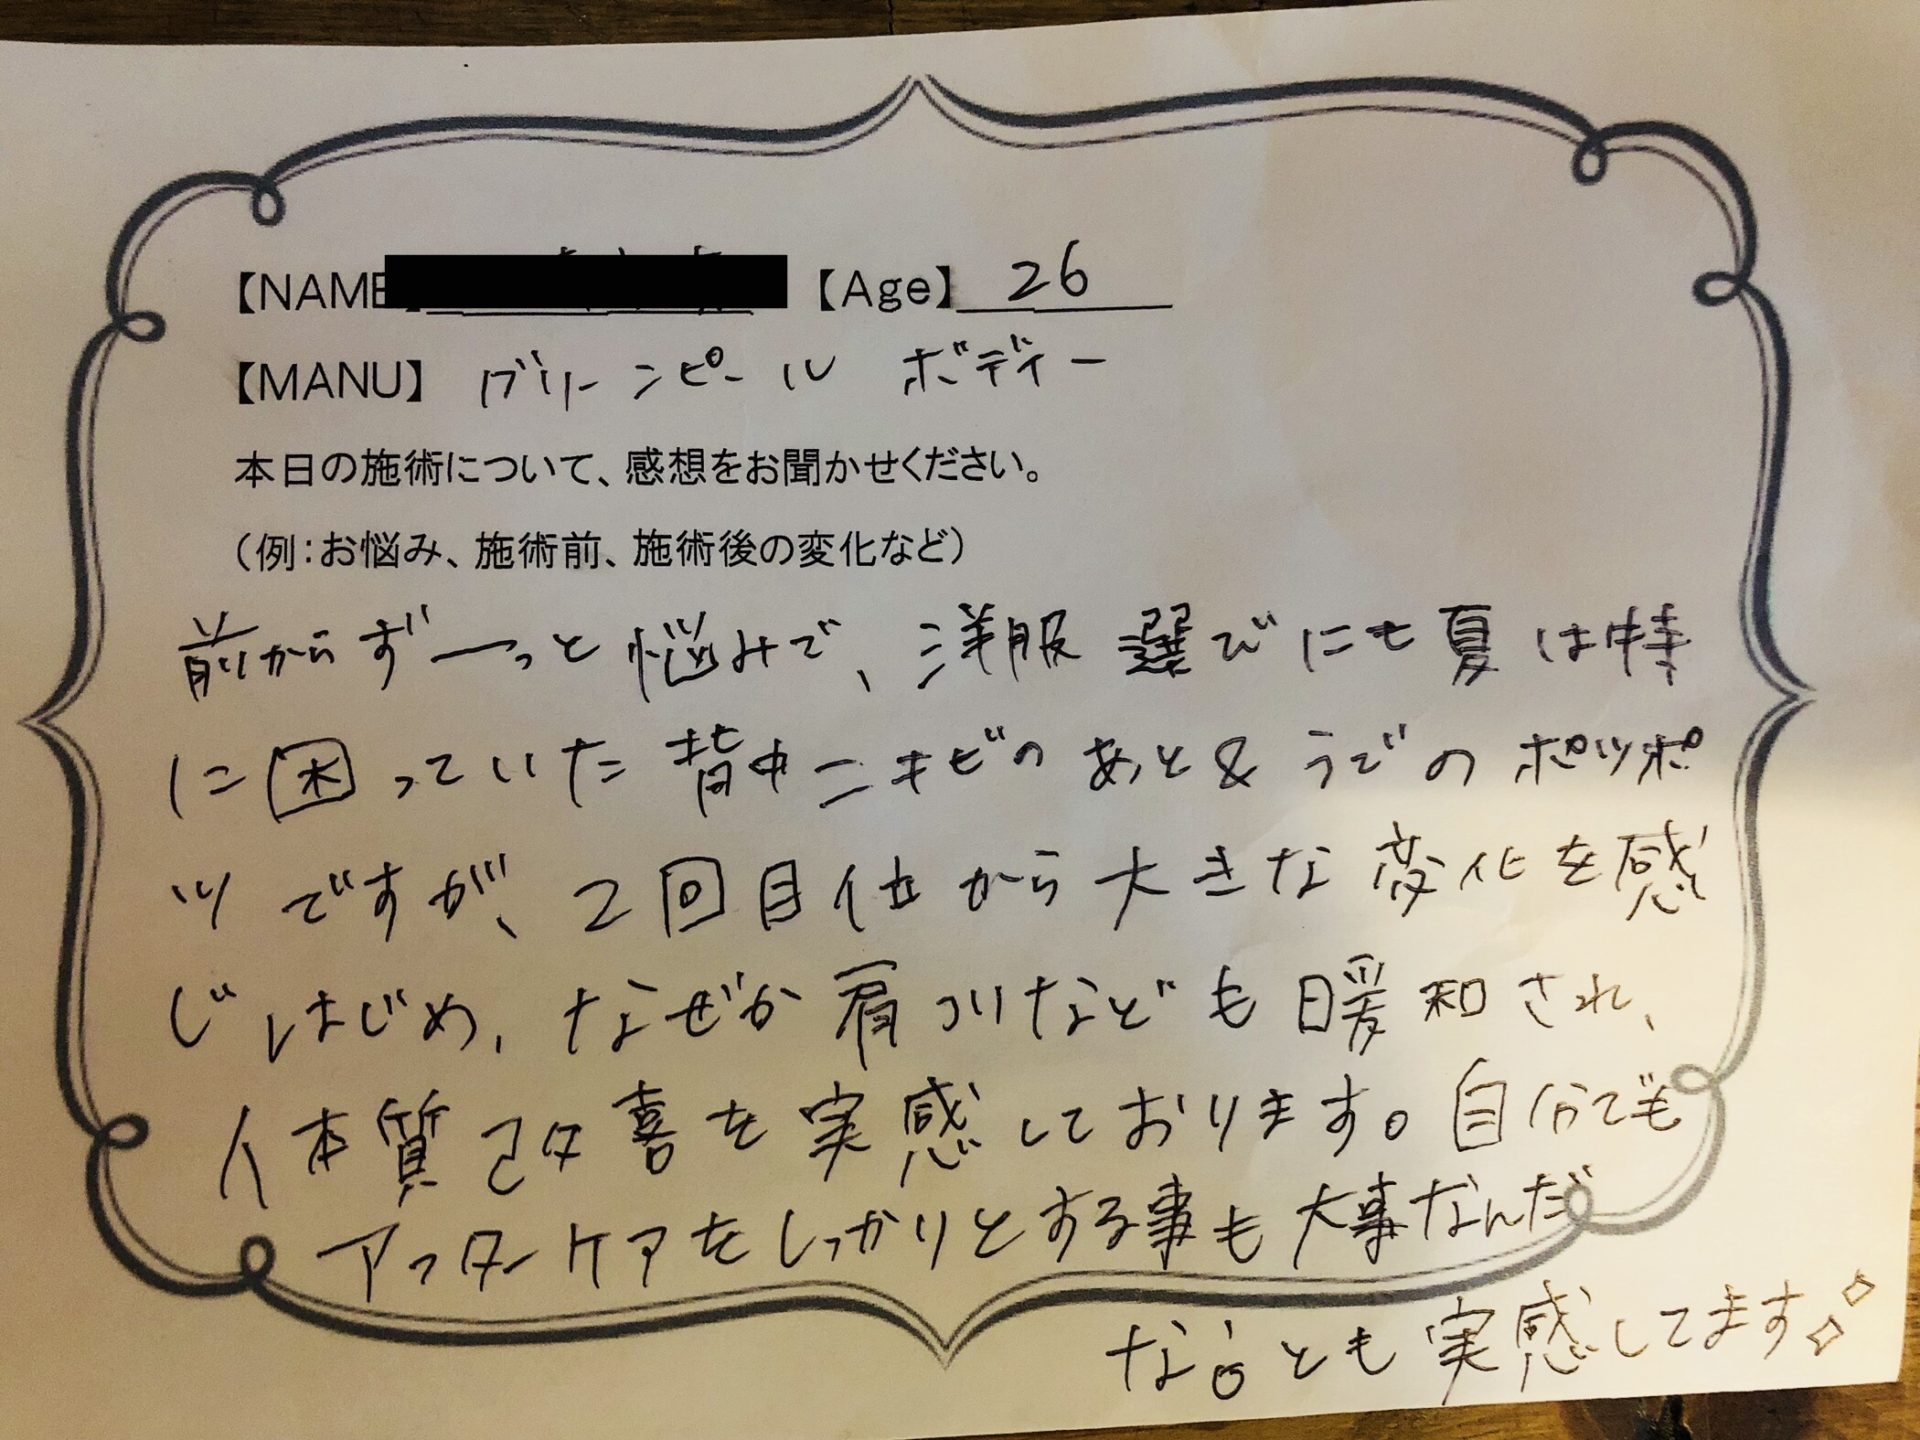 【NAME 【Age】 26
【MANU】 グリーンピール ボディー
本日の施術について、感想をお聞かせください。
（例：お悩み、施術前、施術後の変化など）
前からずーっと悩みで、洋服選びにも夏は特
に困っていた背中ニキビのあと&うでのポツポ
ツですが、2回目位から大きな変化を感
じはじめ、なぜか肩コリなども暖和され、
体質改善を実感しております。自分でも
アフターケアをしっかりとする事も大事なんだ
なぁとも実感してます。